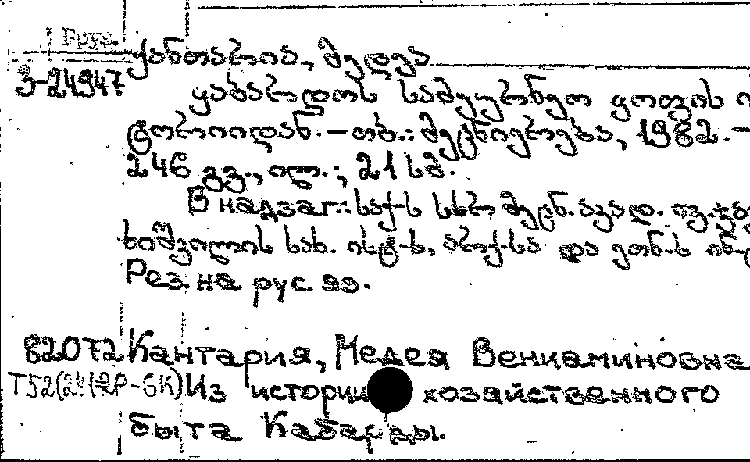 Груз.
ქანთარია, მედეა
3-24947
ყაბარდოს სამეურნეო ყოფის ი
ტორიიდან. — თბ.: მეცნიერება, 1982. —
246 გვ., ილ.; 21 სმ.
В надзаг.: საქ-ს სსრ მეცნ. აკად. ივ. ჯავ
ხიშვილის სახ. ისტ-ს, არქ-სა და ეთნ-ს ინ
Рез. на рус яз.
82072 Кантария, Медея Вениаминовна
T52(2Ч2Р-6К) Из истории хозяйственного
быта Кабарды.